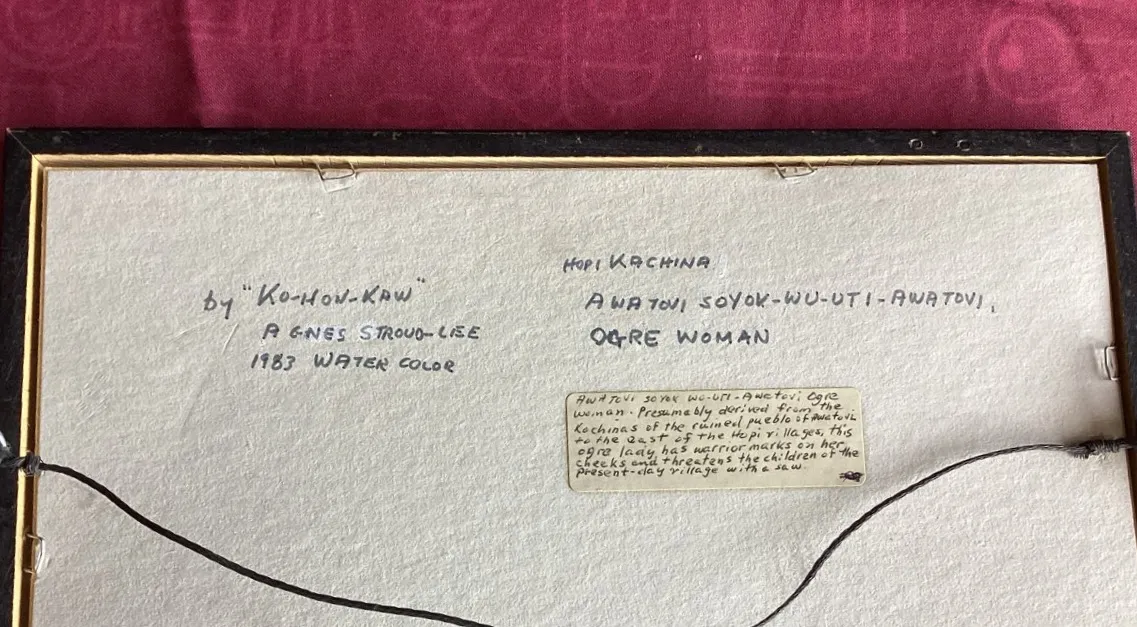 by "KO-HON-KAW"
AGNES STROUD-LEE
1983 WATER COLOR
HOPI KACHINA
AWATOVI SOYOK-WU-UTI-AWATOVI,
OGRE WOMAN
AWATOVI SOYOK WU-UTI-Awatovi Ogre
woman. Presumably derived from the
Kachinas of the ruined pueblo of Awatovi
to the east of the Hopi villages, this
ogre lady has warrior marks on her
cheeks and threatens the children of the
present-day village with a saw.